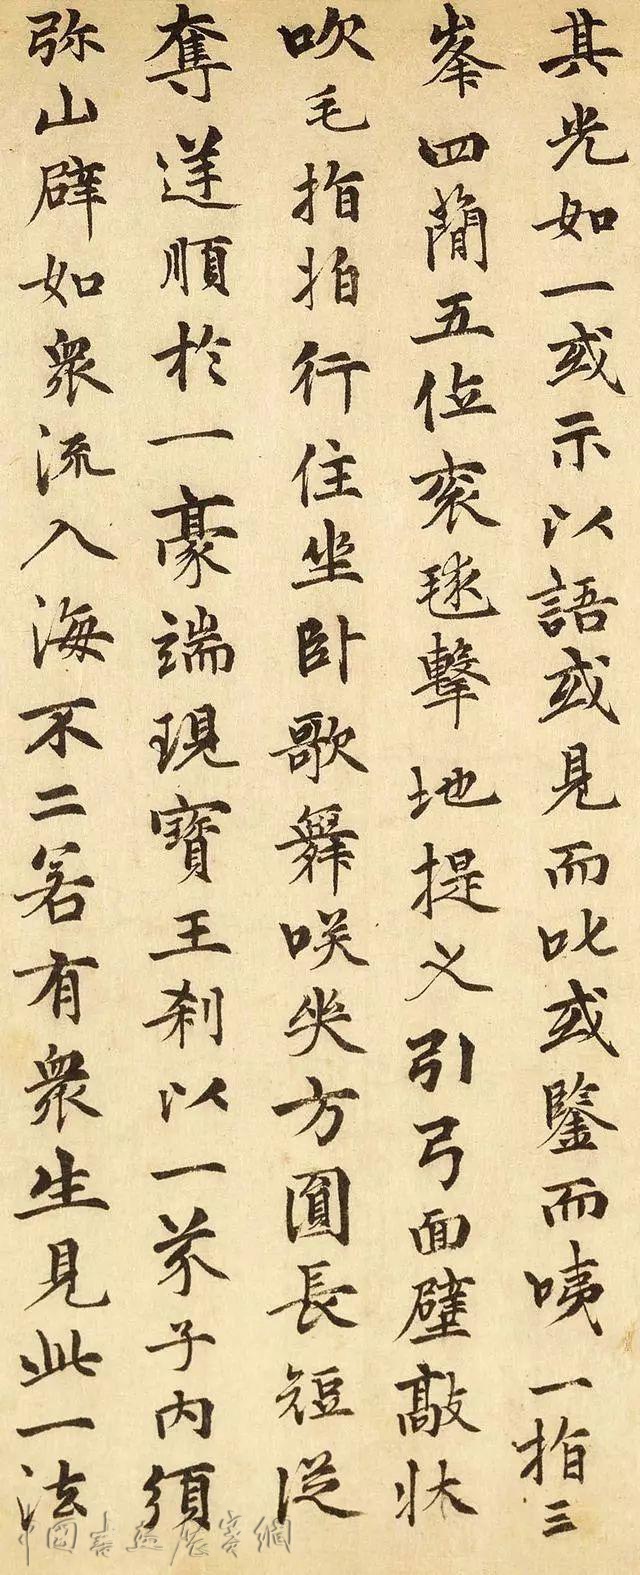 其光如一或示以語或見而叱或鑒而咦一指三
峯四蕳五位衮毬擊地提义引弓面壁敲牀
吹毛指拍行住坐卧歌舞咲哭方圓長短從
奪逆順於一豪端現寶王刹以一芥子内須
弥山辟如衆流入海不二若有衆生見此一法
中國書画展賽網